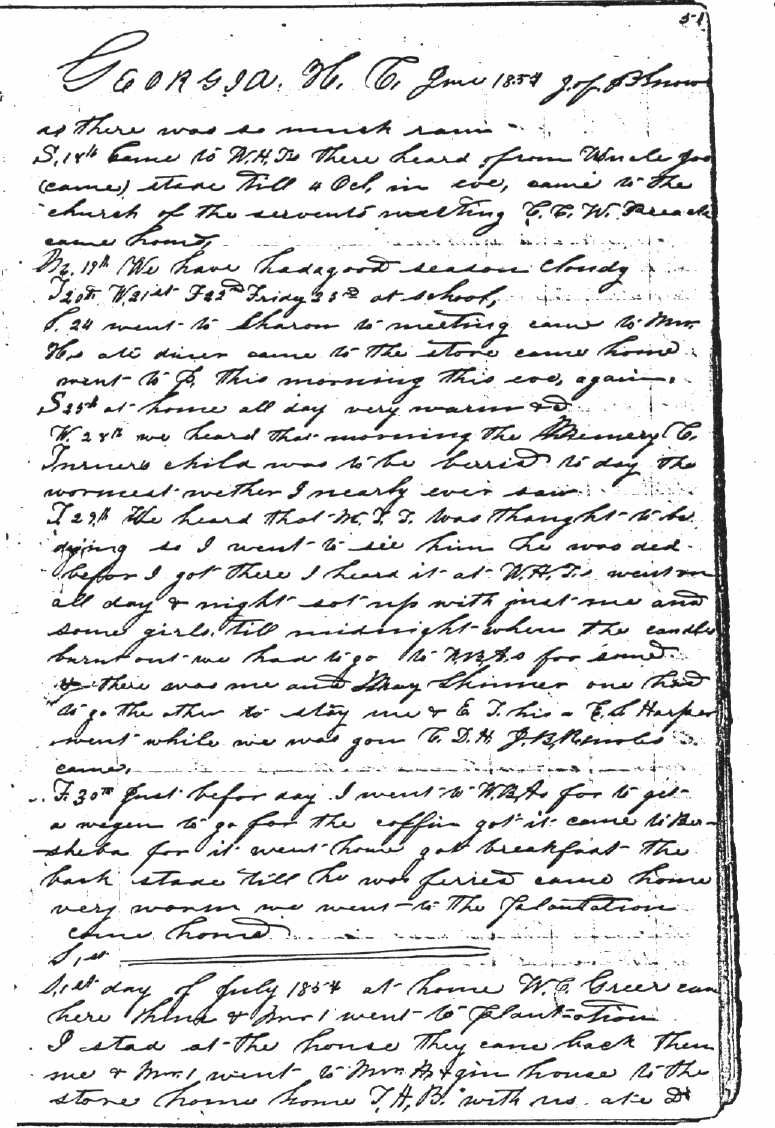 51
GEORGIA. H. C. June 1854 Jos. B Snow
as there was so much rain
S, 18th Came to W. H. Ts there heard from Uncle Joe
(came) stade till 4 Ocl, in eve, came to the
church of the servents meeting C. C. W. Preach
came home,
M. 19th We have had a good season cloudy
T 20th W, 21st F 22nd Friday 23rd at school,
S. 24 went to Sharon to meeting came to Mr.
H,s ate diner came to the store came home
went to P, this morning this eve, again.
S 25th at home all day very warm &c
W. 28th we heard that morning the Emery C.
Turners child was to be berried to day the
wormest wether I nearly ever saw
T, 29th We heard that M. T. T. was thought to be
dying so I went to see him he was ded
befor I got there I heard it at W. H. T.s went on
all day & night sot up with just me and
some girls, till midnight when the candle
burnt out we had to go to W. B. As for some
& there was me and May Skinner one had
to go the other to stay me & E T. his E. S Harper
went while we was gon C. D. H. J. B. Renols
came.
F. 30th Just befor day I went to W. B, As for to get
a wagen to go for the coffin got it came to Ber-
sheba for it went home got breakfast the
back stade till he was ferred came home
very worm we went to the Plantation
came home
S, 1st
S, 1st day of July 1854 at home W. C. Greer cam
here & Mr. went to Plantation
I stad at the house they came back then
me & Mr. went to Mr. gin house to the
store home home T, H, B. with us ate D